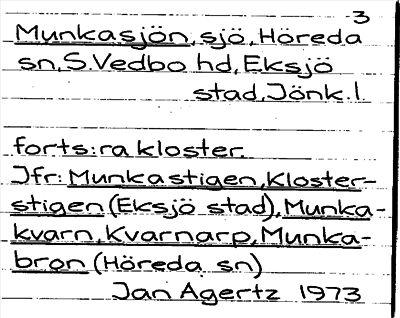 3
Munkasjön, sjö, Höreda
sn, S. Vedbo hd, Eksjö
stad, Jönk. l.
forts: ra kloster.
Jfr: Munkastigen, Kloster-
stigen (Eksjö stad), Munka-
kvarn, Kvarnarp, Munka-
bron (Höreda sn)
Jan Agertz 1973